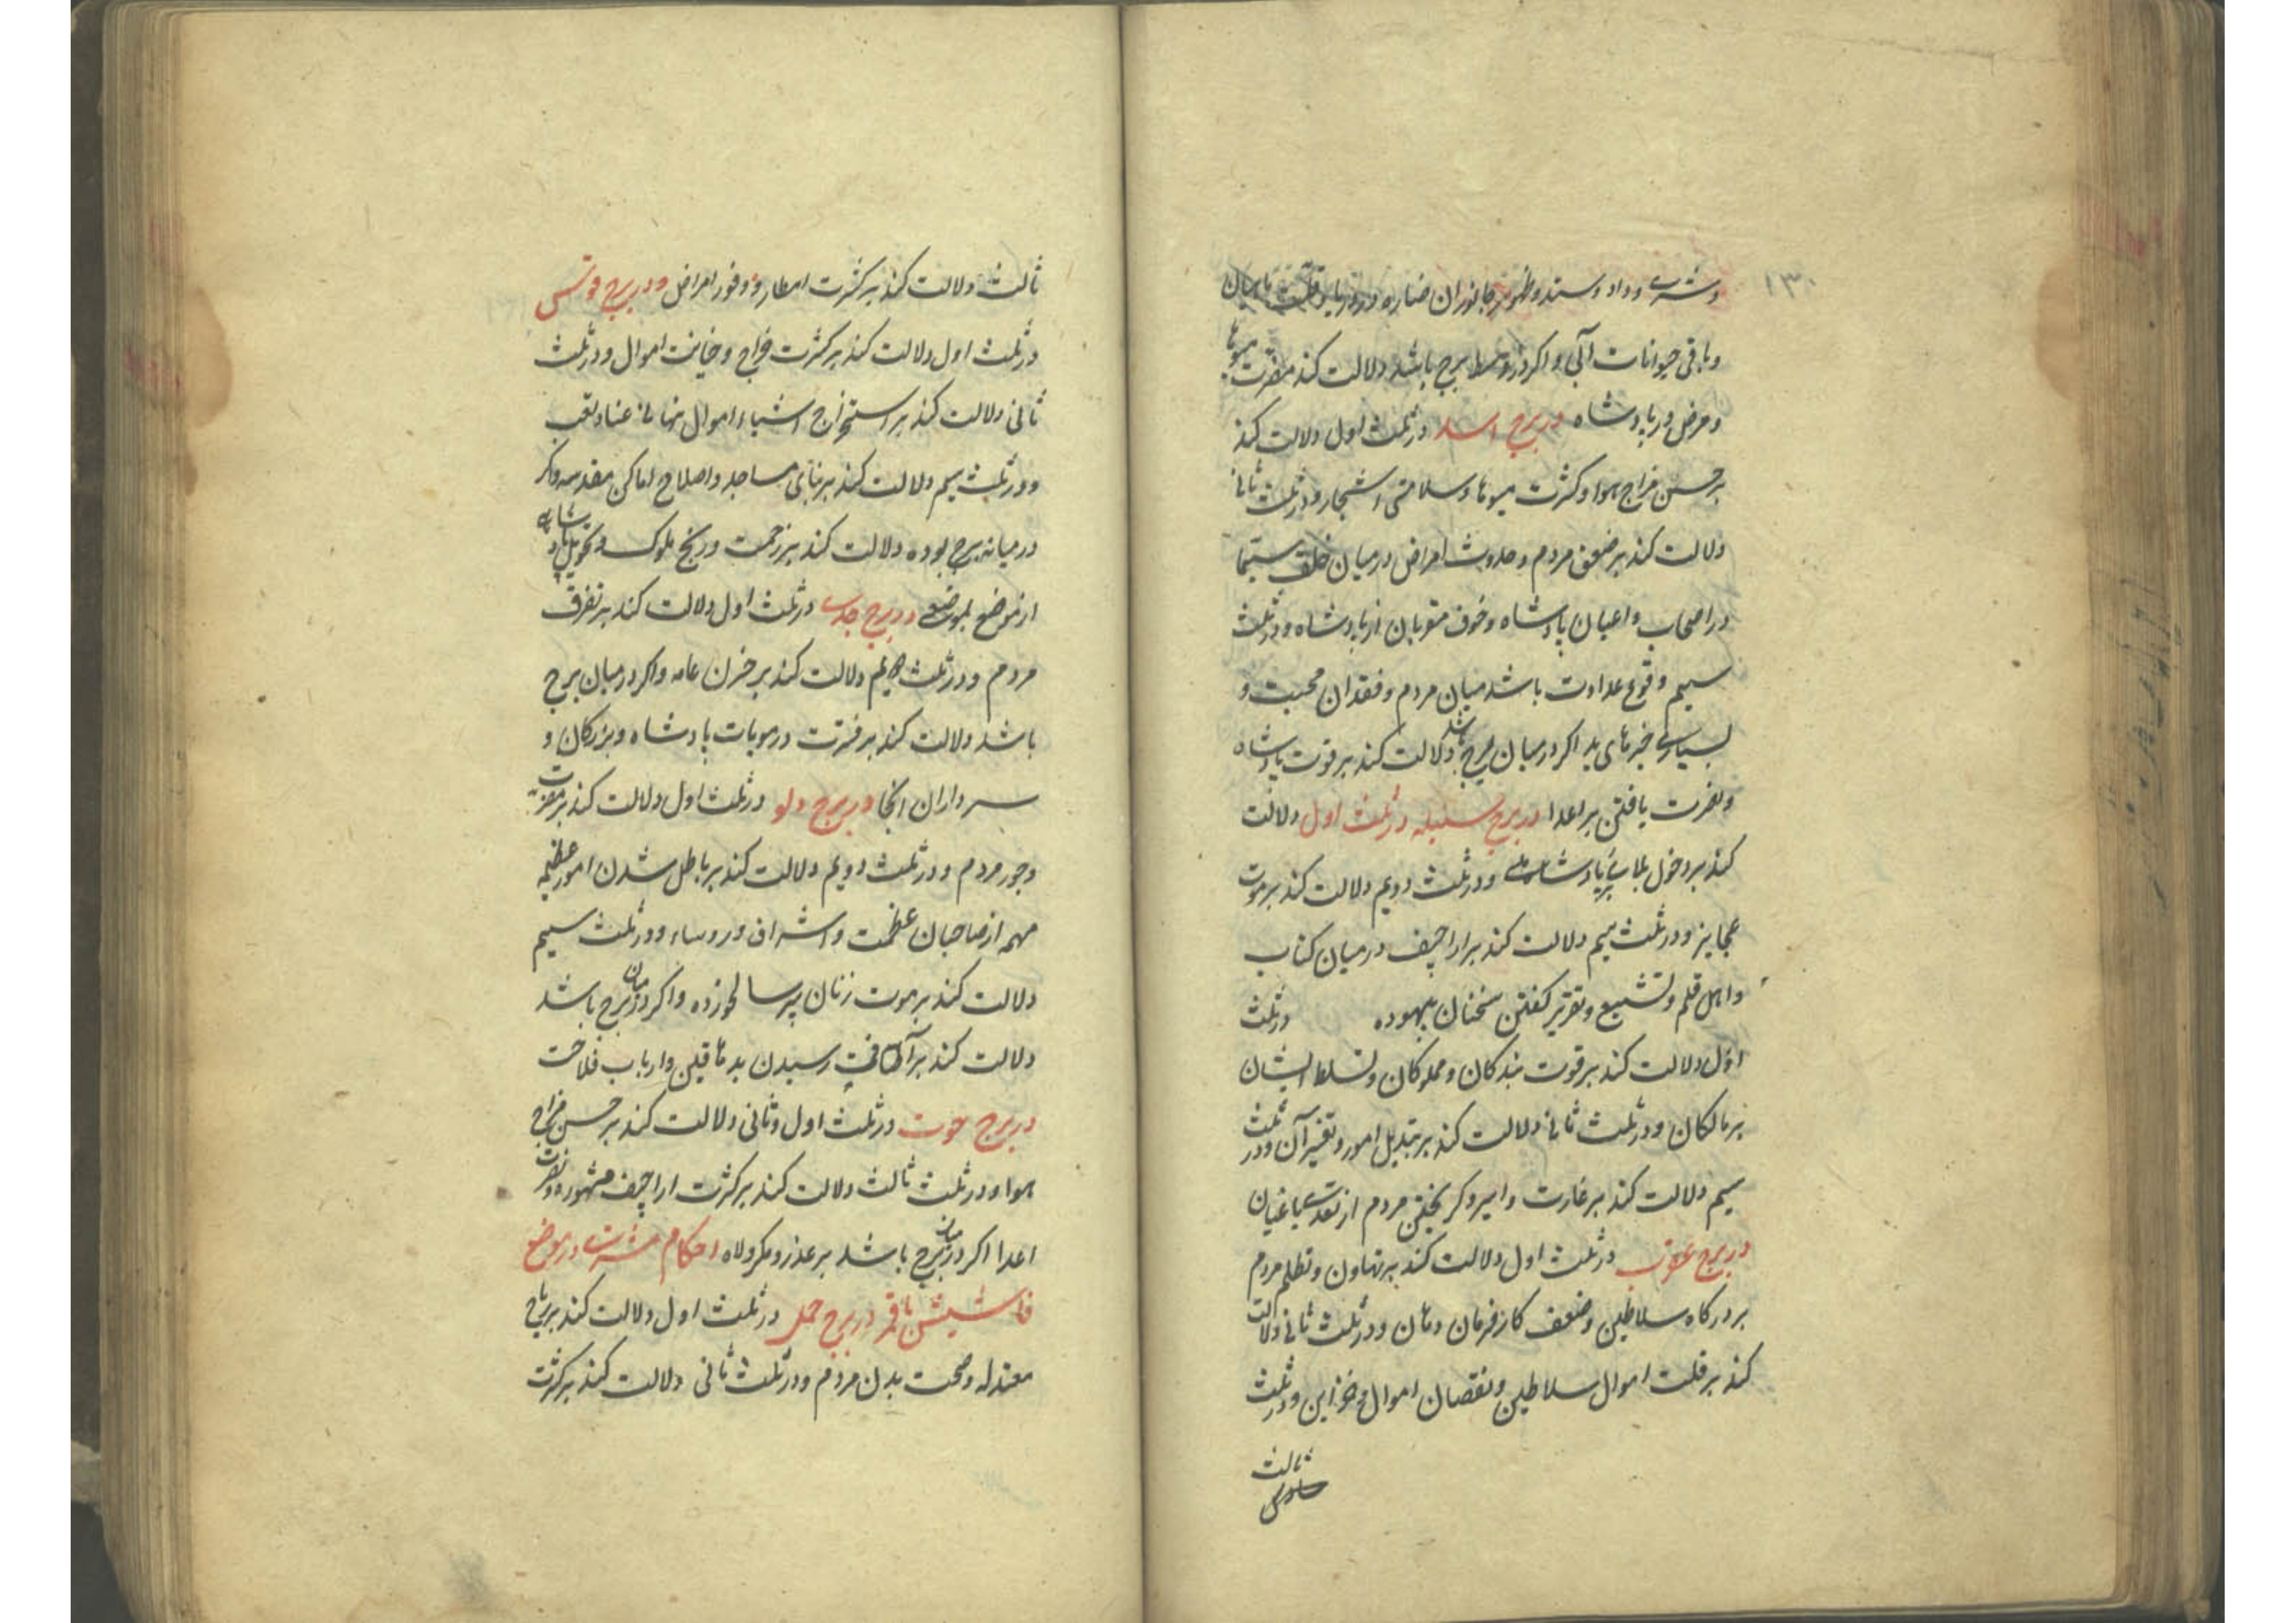 ۱۳۰
و شری و داد و ستد و ظهور جانوران ضاره در دریا و قلت ماهیان
و باقی حیوانات آبی و اکر در وسط برج باشد دلالت کند مضرت میوها
و مرض در پادشاه در برج اسد در ثلث اول دلالت کند
بر حسن مزاج هوا و کثرت میوها و سلامتی اشجار و در ثلث ثانی
دلالت کند بر ضعف مردم و حدوث امراض در میان خلق سیما
در اصحاب و اعیان پادشاه و خوف مقربان از پادشاه و در ثلث
سیم وقوع عداوت باشد میان مردم و فقدان محبت و
بسیاری خبرهای بد اکر در میان برج باشد دلالت کند بر قوت پادشاه
و نصرت یافتن بر اعدا در برج سنبله در ثلث اول دلالت
کند بر دخول بلا بر پادشاه و در ثلث دویم دلالت کند بر موت
عجایز و در ثلث سیم دلالت کند بر اراجیف در میان کتاب
و اهل قلم و تشنیع و تقریر کفتن سخنان بیهوده در ثلث
اول دلالت کند بر قوت بندکان و مملوکان و تسلط ایشان
بر مالکان و در ثلث ثانی دلالت کند بر تبدیل امور و تغییر آن و در ثلث
سیم دلالت کند بر غارت و اسیر و کریختن مردم از تعدی یاغیان
در برج عقرب در ثلث اول دلالت کند بر تهاون و تظلم مردم
بر درکاه سلاطین و ضعف کارفرمان دهان و در ثلث ثانی دلالت
کند بر قلت اموال سلاطین و نقصان اموال و خزاین و در ثلث
ثالث
ثالث دلالت کند بر کثرت امطار و وفور امراض و در برج قوس
در ثلث اول دلالت کند بر کثرت خراج و خیانت اموال و در ثلث
ثانی دلالت کند بر استخراج اشیاء و اموال پنهانی عنا و تعب
و در ثلث سیم دلالت کند بر بنای مساجد و اصلاح اماکن مقدسه و اکر
در میانه برج بوده دلالت کند بر زحمت و رنج ملوک و تحویل پادشاهی
از موضع بموضعی در برج جدی در ثلث اول دلالت کند بر تفرق
مردم و در ثلث سیم دلالت کند بر حزن عامه و اکر در میان برج
باشد دلالت کند بر فترت در مهمات پادشاه و بزرکان و
سرداران انجا در برج دلو در ثلث اول دلالت کند بر مضرت
و جور مردم و در ثلث دویم دلالت کند بر باطل شدن امور عظیمه
مهمه از صاحبان عظمت و اشراف و روساء و در ثلث سیم
دلالت کند بر موت زنان پیر سالخورده و اکر در میان برج باشد
دلالت کند بر آفت رسیدن بدهاقین و ارباب فلاحت
در برج حوت در ثلث اول و ثانی دلالت کند بر حسن مزاج
هوا و در ثلث ثالث دلالت کند بر کثرت اراجیف مشهوره و نصرت
اعدا اکر در میان برج باشد بر عذر و مکر ولاه احکام مشتری در موضع
در برج حمل در ثلث اول دلالت کند بر ریاح
معتدله و صحت بدن مردم و در ثلث ثانی دلالت کند بر کثرت